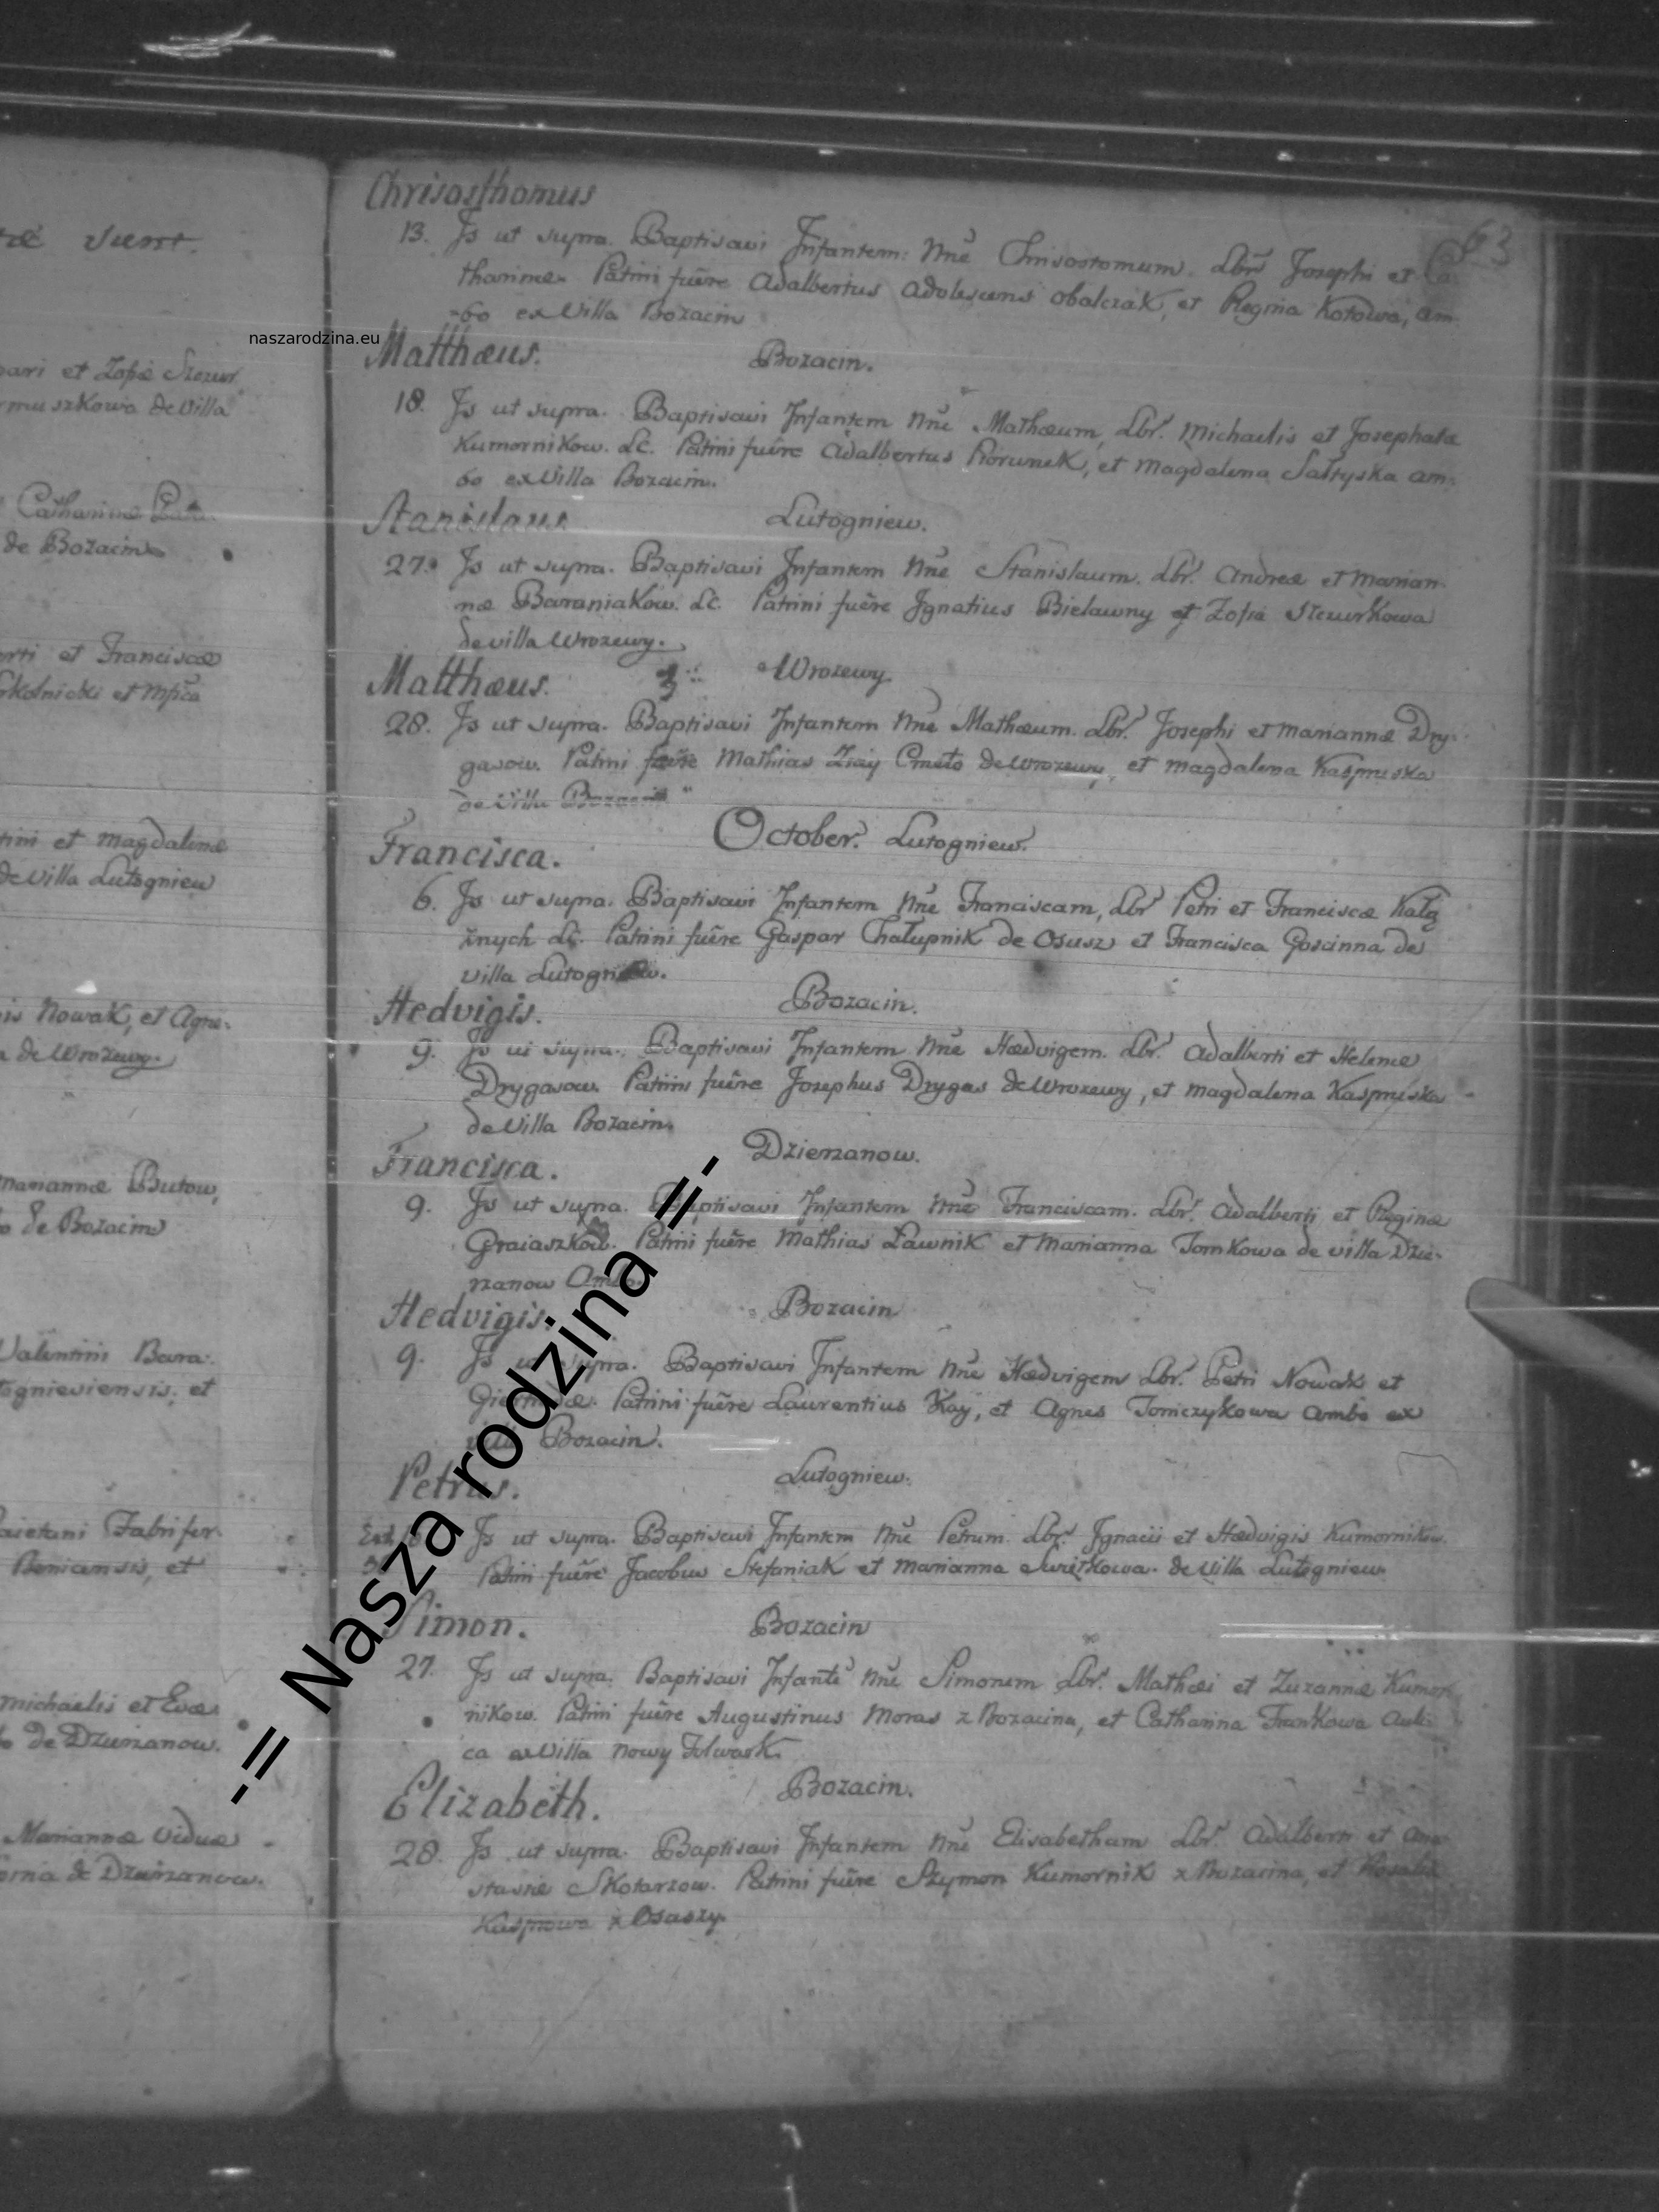 træ sunt.
pari et Zofiæ Szczur
rmuszkowa de Villa
Catharinæ
de Bozacin
rti et Franciscæ
Skolnicki et Mpca
tini et Magdalenæ
de Villa Lutogniew
is Nowak, et Agne-
a de Wrozewy.
Mariannæ Butow,
o de Bozacin
Valentini Bara-
tognieviensis, et
Caietani Fabri fer-
Beniamsis, et
Michaelis et Evæ
de Dzierzanow.
Mariannæ Viduæ
orna de Dzierzanow.
63
Chrisosthomus
13. Is ut supra. Baptisavi Infantem: Nne Chrisostomum. Lbr. Josephi et Ca
tharinæ. Patrini fuêre Adalbertus adolescens Obalczak, et Regina Kotowa, am-
-bo ex Villa Bozacin
naszarodzina.eu
Matthæus. Bozacin.
18. Is ut supra. Baptisavi Infantem Nne Mathæum, Lbr. Michaelis et Josephata
Kumornikow. Lc. Patrini fuêre Adalbertus Piorunek, et Magdalena Sałtyska am-
bo ex Villa Bozacin.
Stanislaus Lutogniew.
27. Is ut supra. Baptisavi Infantem Nne Stanislaum. Lbr. Andreæ et Marian-
næ Baraniakow. Lc. Patrini fuêre Ignatius Bielawny et Zofia Szczurkowa
de villa Wrozewy.
Matthæus. 3 Wrozewy.
28. Is ut supra. Baptisavi Infantem Nne Mathæum. Lbr. Josephi et Mariannæ Dry-
gasow. Patrini fuêre Mathias Ziay Cmeto de Wrozewy, et Magdalena Kaspruska
de Villa Bozacin
October. Lutogniew.
Francisca.
6. Is ut supra. Baptisavi Infantem Nne Franciscam, Lbr Petri et Franciscæ Kałą
żnych Lc. Patrini fuêre Gaspar Chałupnik de Osusz et Francisca Goscinna de
villa Lutogniew.
Hedvigis. Bozacin.
9. Is ut supra. Baptisavi Infantem Nne Hædvigem. Lbr. Adalberti et Helenæ
Drygasow. Patrini fuêre Josephus Drygas de Wrozewy, et Magdalena Kaspruska
de Villa Bozacin.
Francisca. Dzierzanow.
9. Is ut supra. Baptisavi Infantem Nne Franciscam. Lbr. Adalberti et Reginæ
Graiaszkow. Patrini fuêre Mathias Ławnik et Marianna Tomkowa de villa Dzie-
rzanow Ambo.
Hedvigis. Bozacin
9. Is ut supra. Baptisavi Infantem Nne Hædvigem Lbr. Petri Nowak et
Patrini fuêre Laurentius Kay, et Agnes Tomczykowa ambo ex
villa Bozacin.
Petrus. Lutogniew.
Is ut supra. Baptisavi Infantem Nne Petrum. Lbr. Ignacii et Hædvigis Kumornikow.
Patrini fuêre Jacobus Stefaniak et Marianna Swiętkowa. de Villa Lutogniew.
Simon. Bozacin
27. Is ut supra. Baptisavi Infante Nne Simonem Lbr. Mathæi et Zuzannæ Kumor
nikow. Patrini fuêre Augustinus Moras z Bozacina, et Catharina Frankowa Auli
ca ex Villa Nowy Folwark.
Elizabeth. Bozacin.
28. Is ut supra. Baptisavi Infantem Nne Elisabetham Lbr. Adalberti et Ana-
stasiæ Skotarzow. Patrini fuêre Szymon Kumornik z Bozacina, et Rosalia
Kasprowa z Osuszy.
-= Nasza rodzina =-